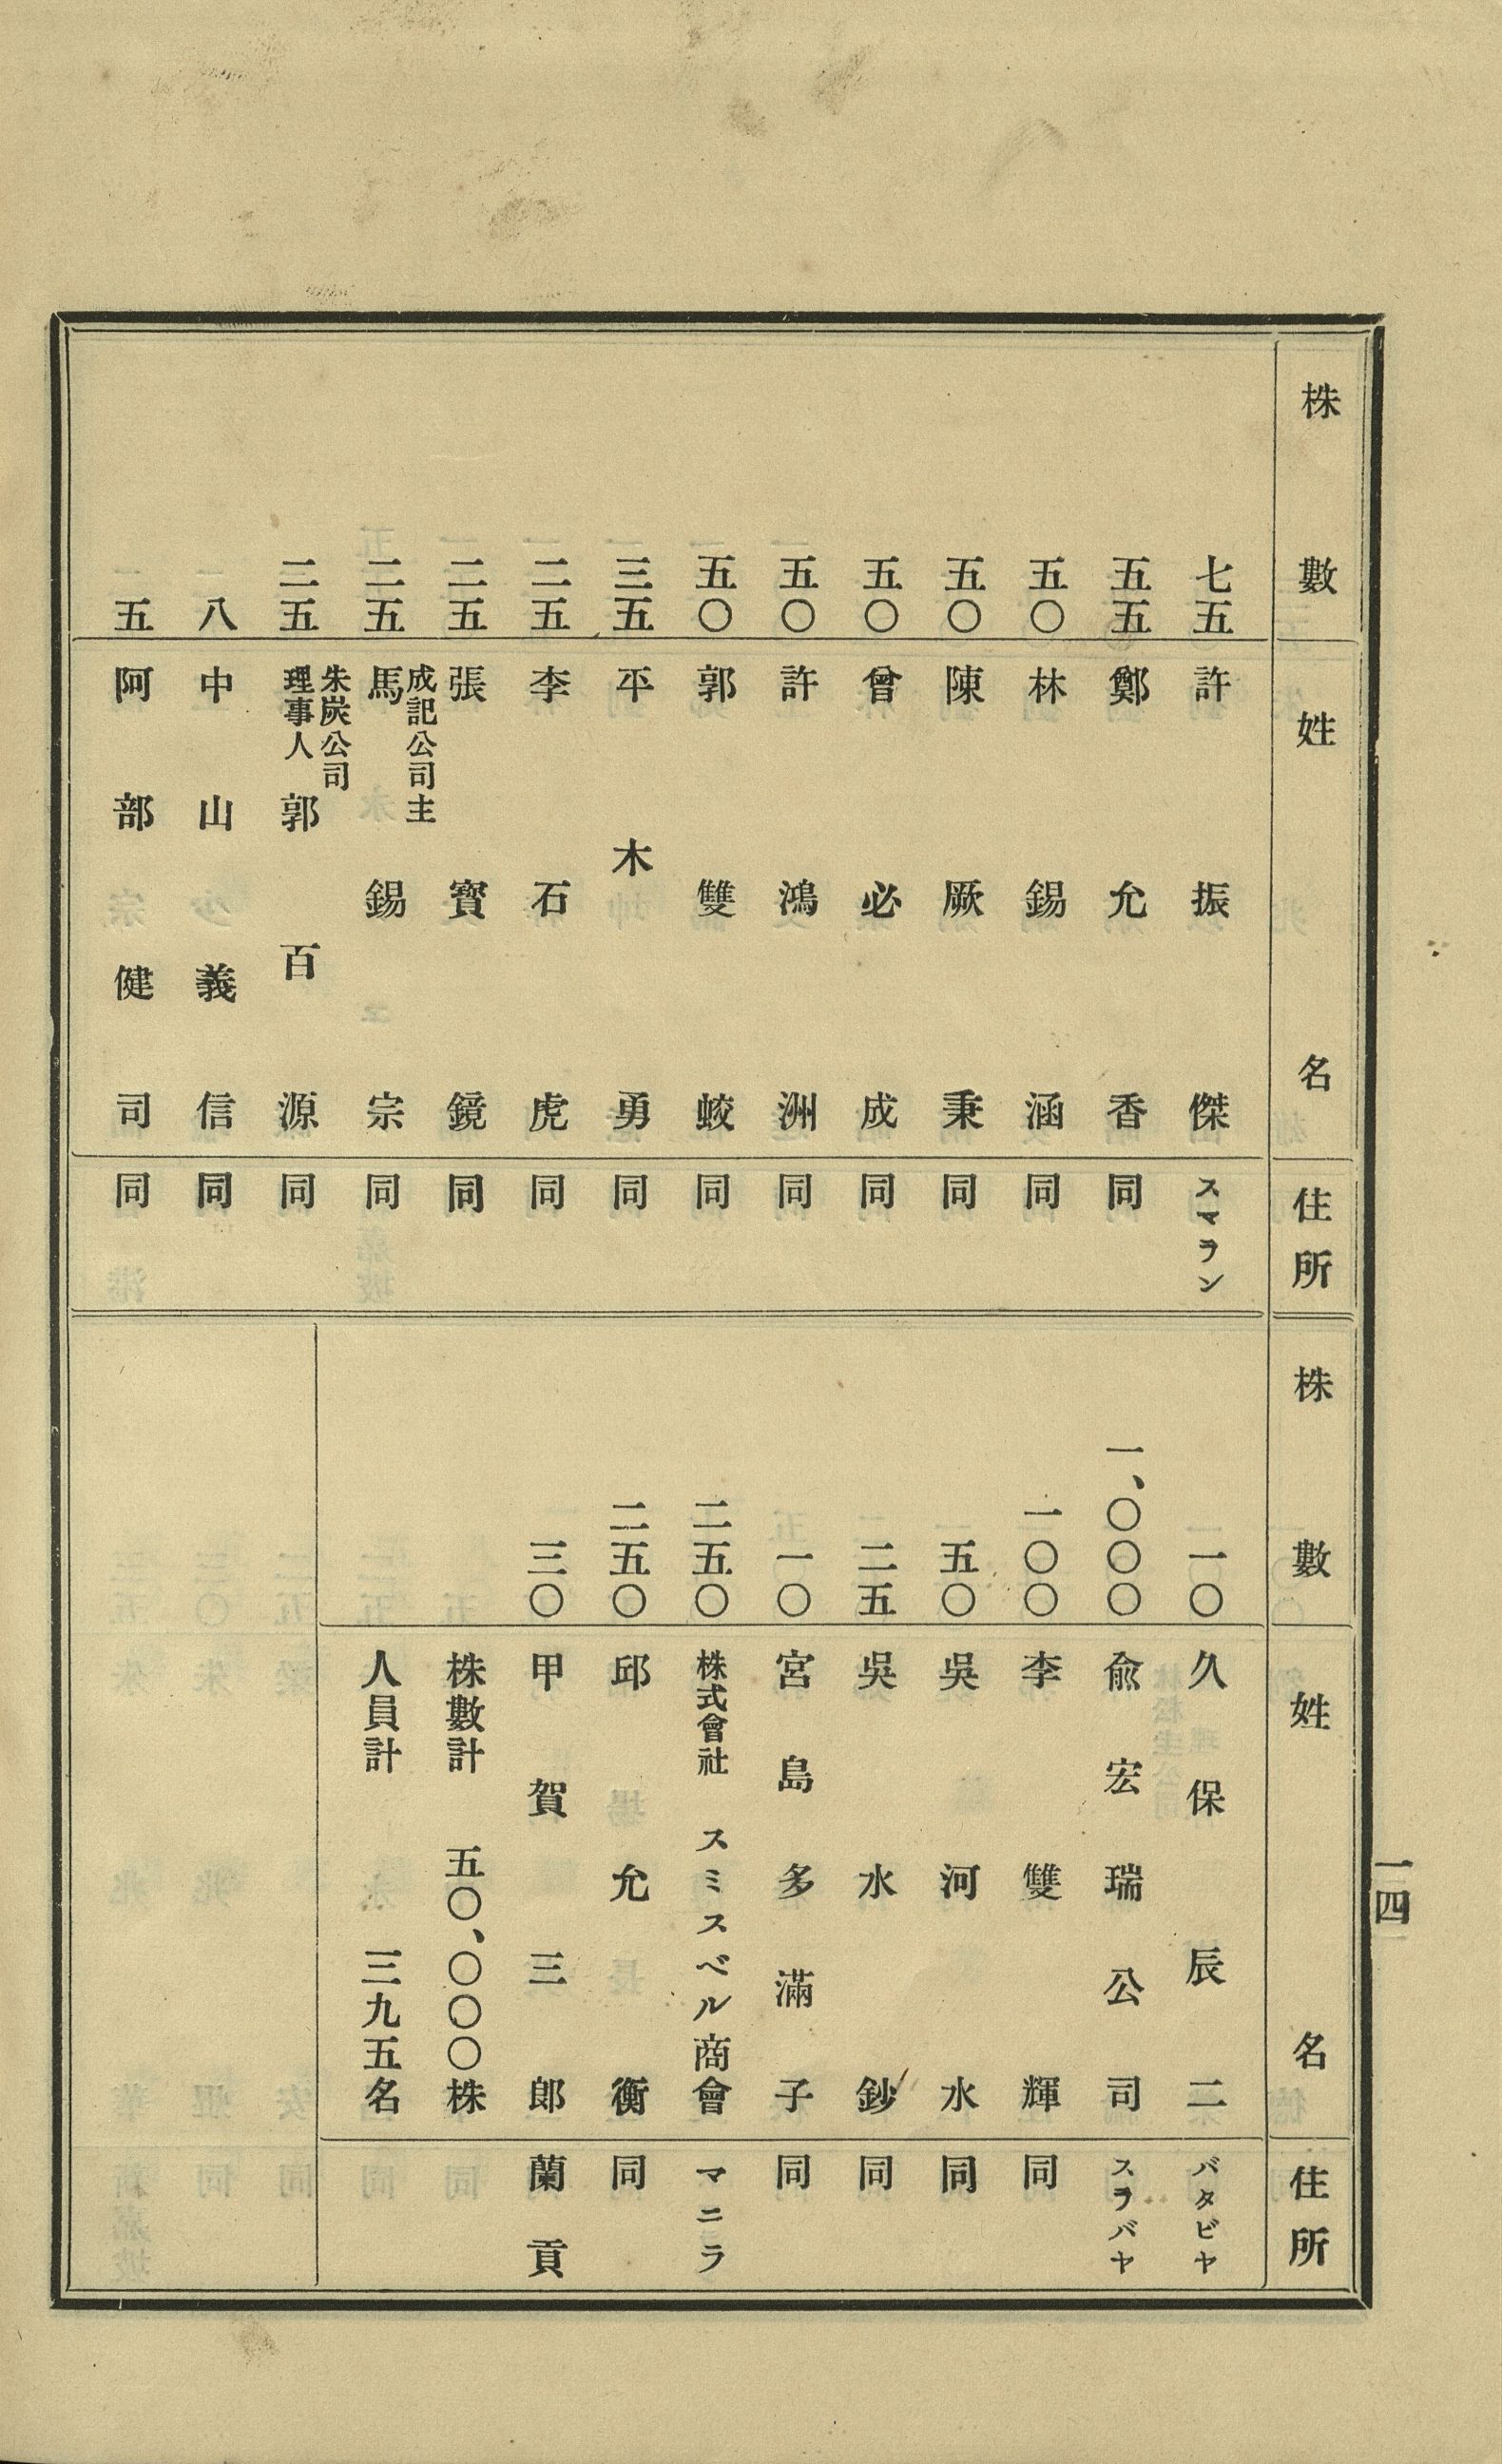 株數 姓名 住所
七五 許振傑 スマラン
五五 鄭允香 同
五〇 林錫涵 同
五〇 陳厥秉 同
五〇 曾必成 同
五〇 許鴻洲 同
五〇 郭雙蛟 同
三五 平木勇 同
二五 李石虎 同
二五 張寶鏡 同
二五 成記公司主 馬錫宗 同
二五 朱炭公司理事人 郭百源 同
八 中山義信 同
五 阿部健司 同
株數 姓名 住所
一〇 久保辰二 バタビヤ
一、〇〇〇 兪宏瑞公司 スラバヤ
一〇〇 李雙輝 同
五〇 吳河水 同
二五 吳水鈔 同
一〇 宮島多滿子 同
二五〇 株式會社スミスベル商會 マニラ
二五〇 邱允衡 同
三〇 甲賀三郎 蘭貢
株數計 五〇、〇〇〇株
人員計 三九五名
一四